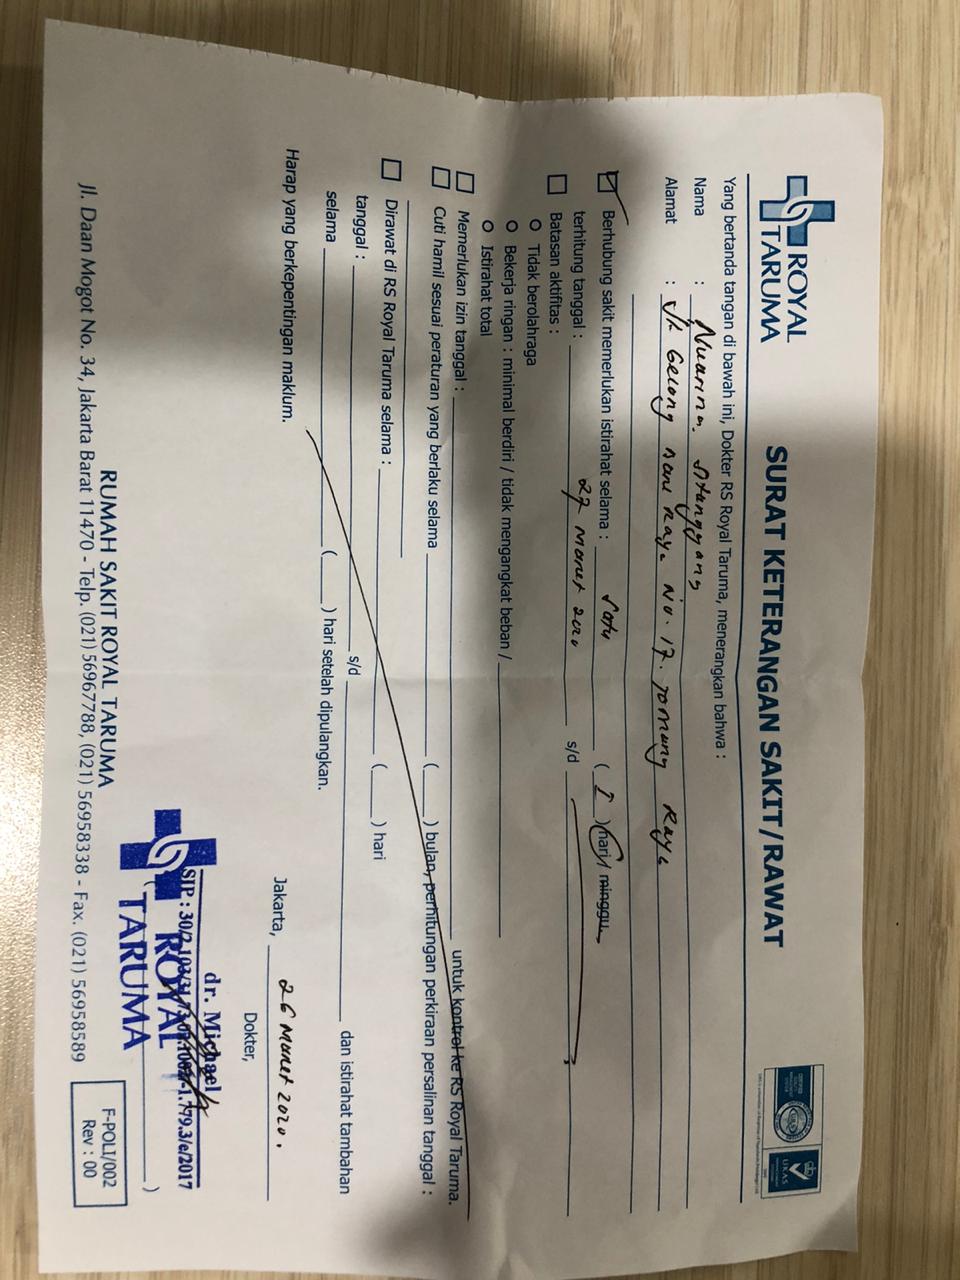 ROYAL
TARUMA
SURAT KETERANGAN SAKIT/RAWAT
Yang bertanda tangan di bawah ini, Dokter RS Royal Taruma, menerangkan bahwa :
Nama :
Alamat : No. 17. Raya
Berhubung sakit memerlukan istirahat selama : Satu ( 1 ) hari/ minggu
terhitung tanggal : 27 Maret 2020 s/d
Batasan aktifitas :
Tidak berolahraga
Bekerja ringan : minimal berdiri / tidak mengangkat beban /
Istirahat total
Memerlukan izin tanggal : untuk kontrol ke RS Royal Taruma.
Cuti hamil sesuai peraturan yang berlaku selama ( ) bulan, perhitungan perkiraan persalinan tanggal :
Dirawat di RS Royal Taruma selama : ( ) hari
tanggal : s/d dan istirahat tambahan
selama ( ) hari setelah dipulangkan.
Harap yang berkepentingan maklum.
Jakarta, 26 Maret 2020.
Dokter,
dr. Michael
ROYAL
TARUMA
RUMAH SAKIT ROYAL TARUMA
Jl. Daan Mogot No. 34, Jakarta Barat 11470 - Telp. (021) 56967788, (021) 56958338 - Fax. (021) 56958589
F-POLI/002
Rev : 00